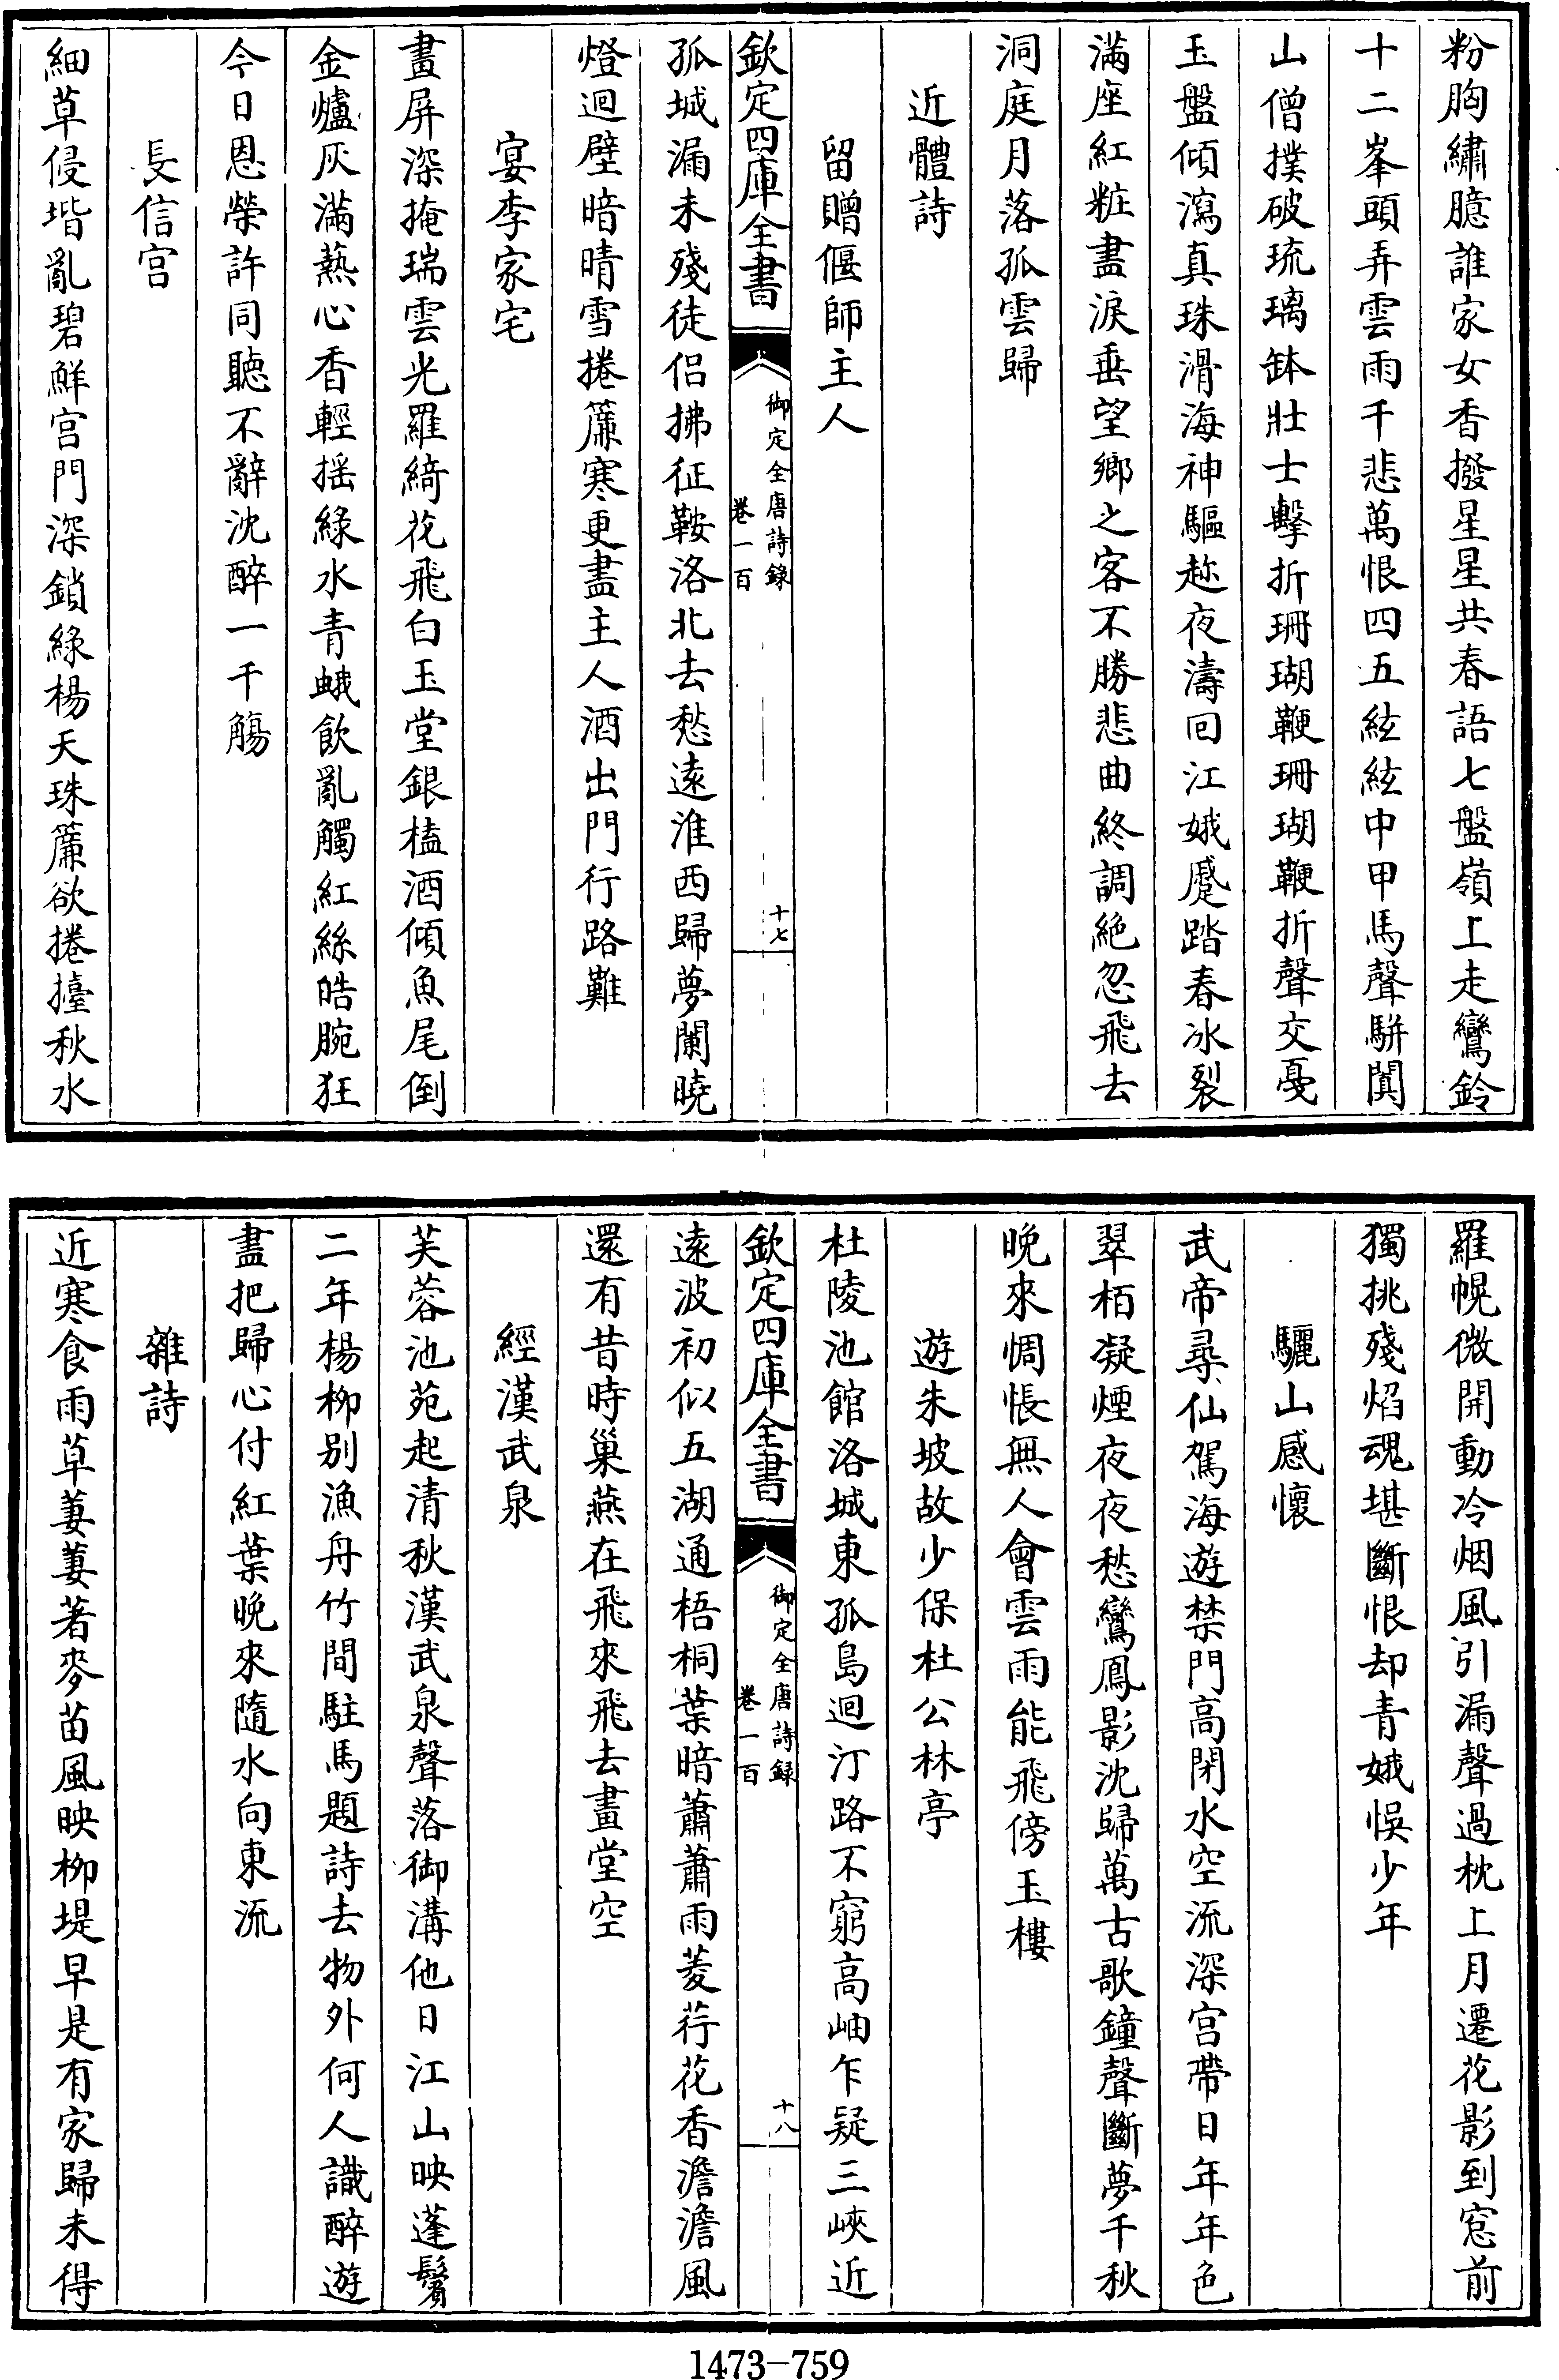 粉胸繡臆誰家女香撥星星共春語七盤嶺上走鸞鈴
十二峯頭弄雲雨千悲萬恨四五絃絃中甲馬聲駢闐
山僧撲破琉璃缽壯士擊折珊瑚鞭珊瑚鞭折聲交戞
玉盤傾瀉真珠滑海神驅趂夜濤回江娥蹙踏春冰裂
滿座紅粧盡淚垂望鄉之客不勝悲曲終調絶忽飛去
洞庭月落孤雲歸
近體詩
留贈偃師主人
欽定四庫全書
御定全唐詩錄
卷一百
十七
孤城漏未殘徒侶拂征鞍洛北去愁遠淮西歸夢闌曉
燈迴壁暗晴雪捲簾寒更盡主人酒出門行路難
宴李家宅
畫屏深掩瑞雲光羅綺花飛白玉堂銀榼酒傾魚尾倒
金爐灰滿𤍠心香輕揺綠水青蛾飲亂觸紅絲皓腕狂
今日恩榮許同聽不辭沈醉一千觴
長信宫
細草侵堦亂碧鮮宫門深鎖綠楊天珠簾欲捲擡秋水
羅幌微開動冷烟風引漏聲過枕上月遷花影到窓前
獨挑殘熖魂堪斷恨却青娥悞少年
驪山感懷
武帝尋仙駕海遊禁門高閉水空流深宫帶日年年色
翠栢凝煙夜夜愁鸞鳳影沈歸萬古歌鐘聲斷夢千秋
晚來惆悵無人會雲雨能飛傍玉樓
遊朱坡故少保杜公林亭
杜陵池館洛城東孤島迴汀路不窮高岫乍疑三峽近
欽定四庫全書
御定全唐詩錄
卷一百
十八
遠波初似五湖通梧桐葉暗蕭蕭雨菱荇花香澹澹風
還有昔時巢燕在飛來飛去畫堂空
經漢武泉
芙蓉池苑起清秋漢武泉聲落御溝他日江山映蓬鬢
二年楊柳别漁舟竹間駐馬題詩去物外何人識醉遊
盡把歸心付紅葉晚來隨水向東流
雜詩
近寒食雨草萋萋著麥苗風映柳堤早是有家歸未得
1473-759